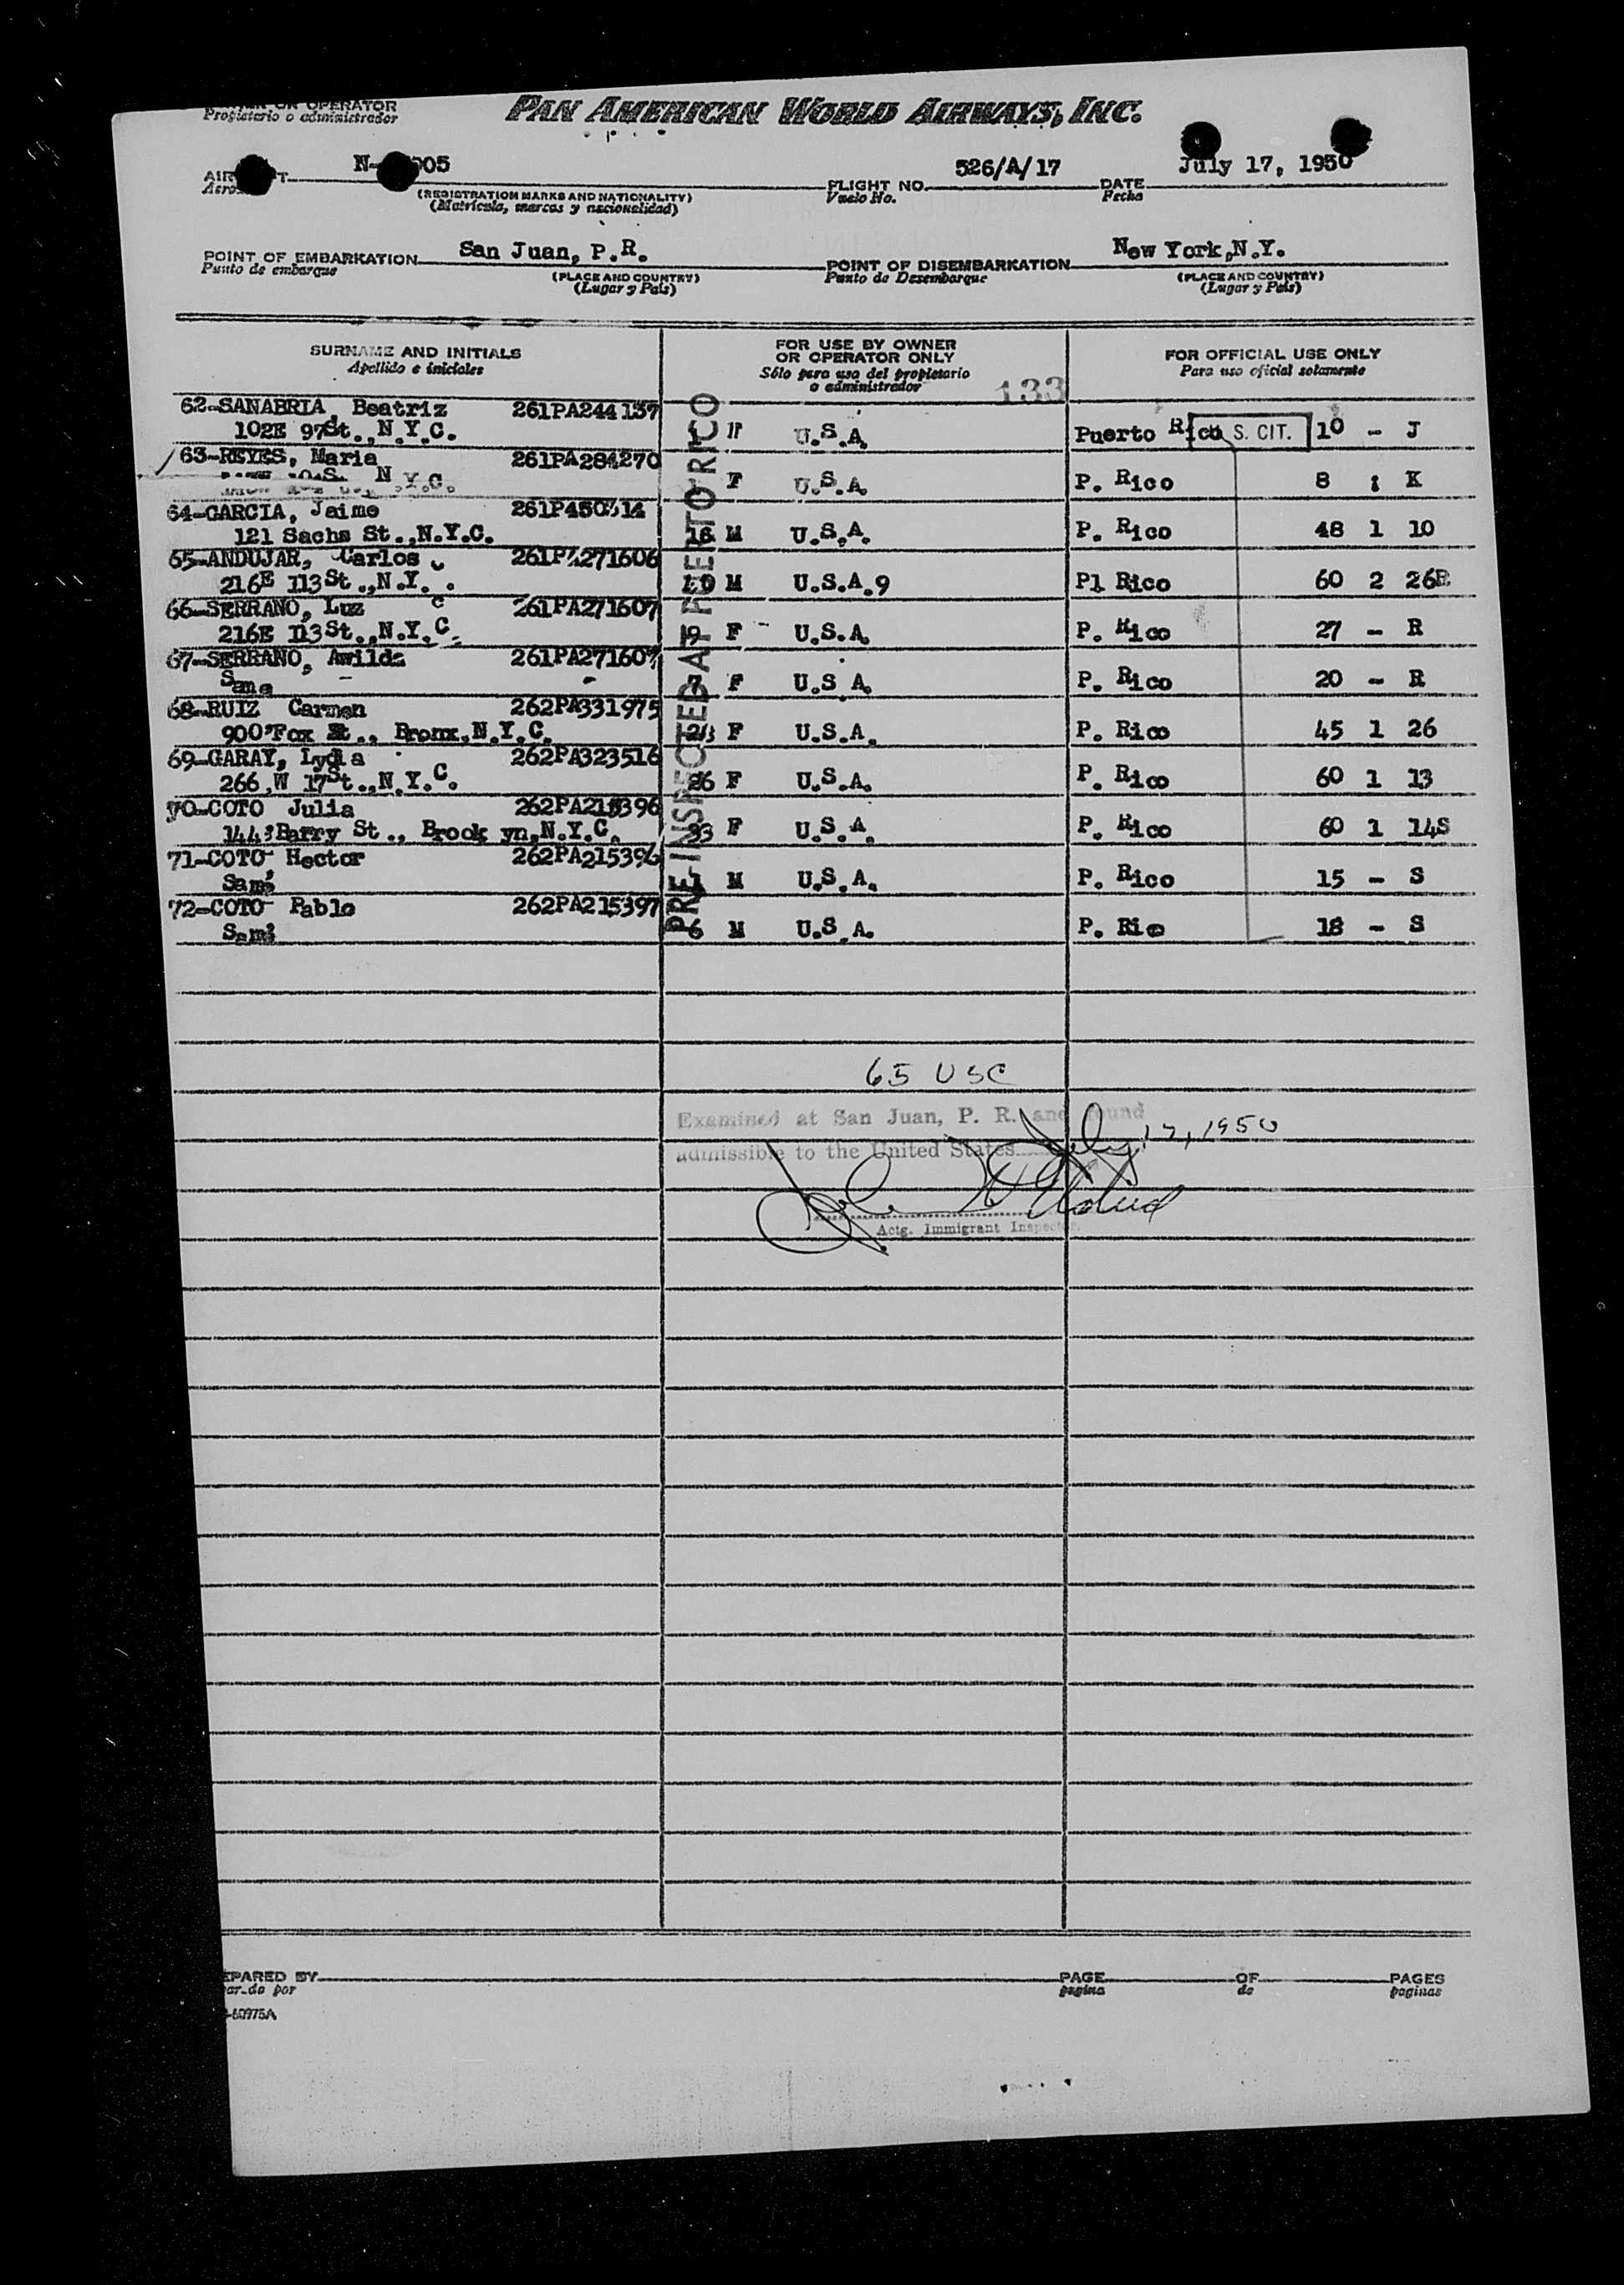 OPERATOR
Propietario o administrador
PAN AMERICAN WORLD AIRWAYS, INC.
N- 005
526/A/17
July 17, 1950
(REGISTRATION MARKS AND NATIONALITY)
(Matrícula, marcas y nacionalidad)
FLIGHT NO.
Vuelo No.
DATE
Fecha
POINT OF EMBARKATION San Juan, P.R.
Punto de embarque
(PLACE AND COUNTRY)
(Lugar y País)
POINT OF DISEMBARKATION New York,N.Y.
Punto de Desembarque
(PLACE AND COUNTRY)
(Lugar y País)
SURNAME AND INITIALS
Apellido e iniciales
FOR USE BY OWNER
OR OPERATOR ONLY
Sólo para uso del propietario
o administrador
133
FOR OFFICIAL USE ONLY
Para uso oficial solamente
PRE-INSPECTED AT PUERTO RICO
62-SANABRIA, Beatriz 261PA244137
102E 97St.,N.Y.C. U.S.A. Puerto Rico S. CIT. 10 - J
63-REYES, Maria 261PA284270
N.Y.C. F U.S.A. P. Rico 8 : K
64-GARCIA, Jaime
121 Sachs St.,N.Y.C. 16 M U.S.A. P. Rico 48 1 10
65-ANDUJAR, Carlos 261PA271606
216E 113St.,N.Y. . M U.S.A.9 Pl Rico 60 2 26R
66-SERRANO, Luz c 261PA271607
216E 113St.,N.Y.C. 9 F U.S.A. P. Rico 27 - R
67-SERRANO, Awilda 261PA271607
Same 7 F U.S A. P. Rico 20 - R
68-RUIZ Carmen 262PA331975
900 Fox St., Bronx,N.Y.C. F U.S.A. P. Rico 45 1 26
69-GARAY, Lydia 262PA323516
266,W 17St.,N.Y.C. 26 F U.S.A. P. Rico 60 1 13
70-COTO Julia 262PA215396
Barry St., Brook yn,N.Y.C. 33 F U.S.A. P. Rico 60 1 14S
71-COTO Hector 262PA215396
Same M U.S.A. P. Rico 15 - S
72-COTO Pablo 262PA215397
Same 6 M U.S.A. P. Rio 18 - S
65 USC
Examined at San Juan, P. R. and found
admissible to the United States July 17, 1950
Actg. Immigrant Inspector.
EPARED BY
ar-do por
PAGE
pagina
OF
de
PAGES
paginas
-60975A